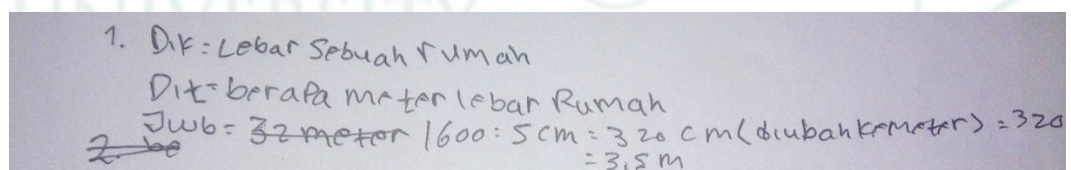 UNIVERSITY
1. Dik : Lebar Sebuah rumah
Dit = berapa meter lebar Rumah
Jwb = 32 meter 1600 : 5 cm = 320 cm (diubah kemeter) = 320
= 3,5 m
2. be